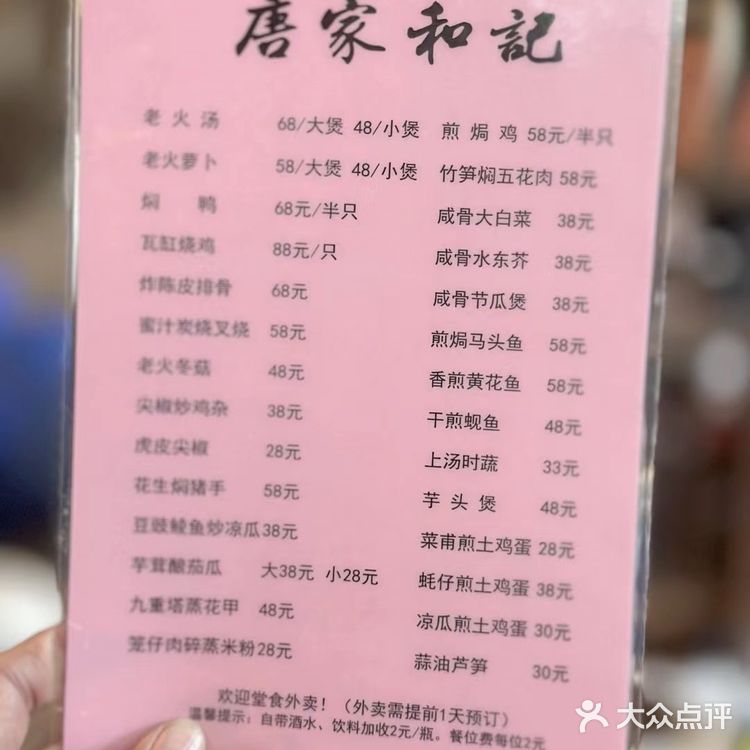 唐家和記
老火汤 68/大煲 48/小煲
老火萝卜 58/大煲 48/小煲
焖鸭 68元/半只
瓦缸烧鸡 88元/只
炸陈皮排骨 68元
蜜汁炭烧叉烧 58元
老火冬菇 48元
尖椒炒鸡杂 38元
虎皮尖椒 28元
花生焖猪手 58元
豆豉鲮鱼炒凉瓜38元
芋茸酿茄瓜 大38元 小28元
九重塔蒸花甲 48元
笼仔肉碎蒸米粉28元
煎焗鸡 58元/半只
竹笋焖五花肉 58元
咸骨大白菜 38元
咸骨水东芥 38元
咸骨节瓜煲 38元
煎焗马头鱼 58元
香煎黄花鱼 58元
干煎蚬鱼 48元
上汤时蔬 33元
芋头煲 48元
菜甫煎土鸡蛋 28元
蚝仔煎土鸡蛋 38元
凉瓜煎土鸡蛋 30元
蒜油芦笋 30元
欢迎堂食外卖！（外卖需提前1天预订）
温馨提示：自带酒水、饮料加收2元/瓶。餐位费每位2元
大众点评